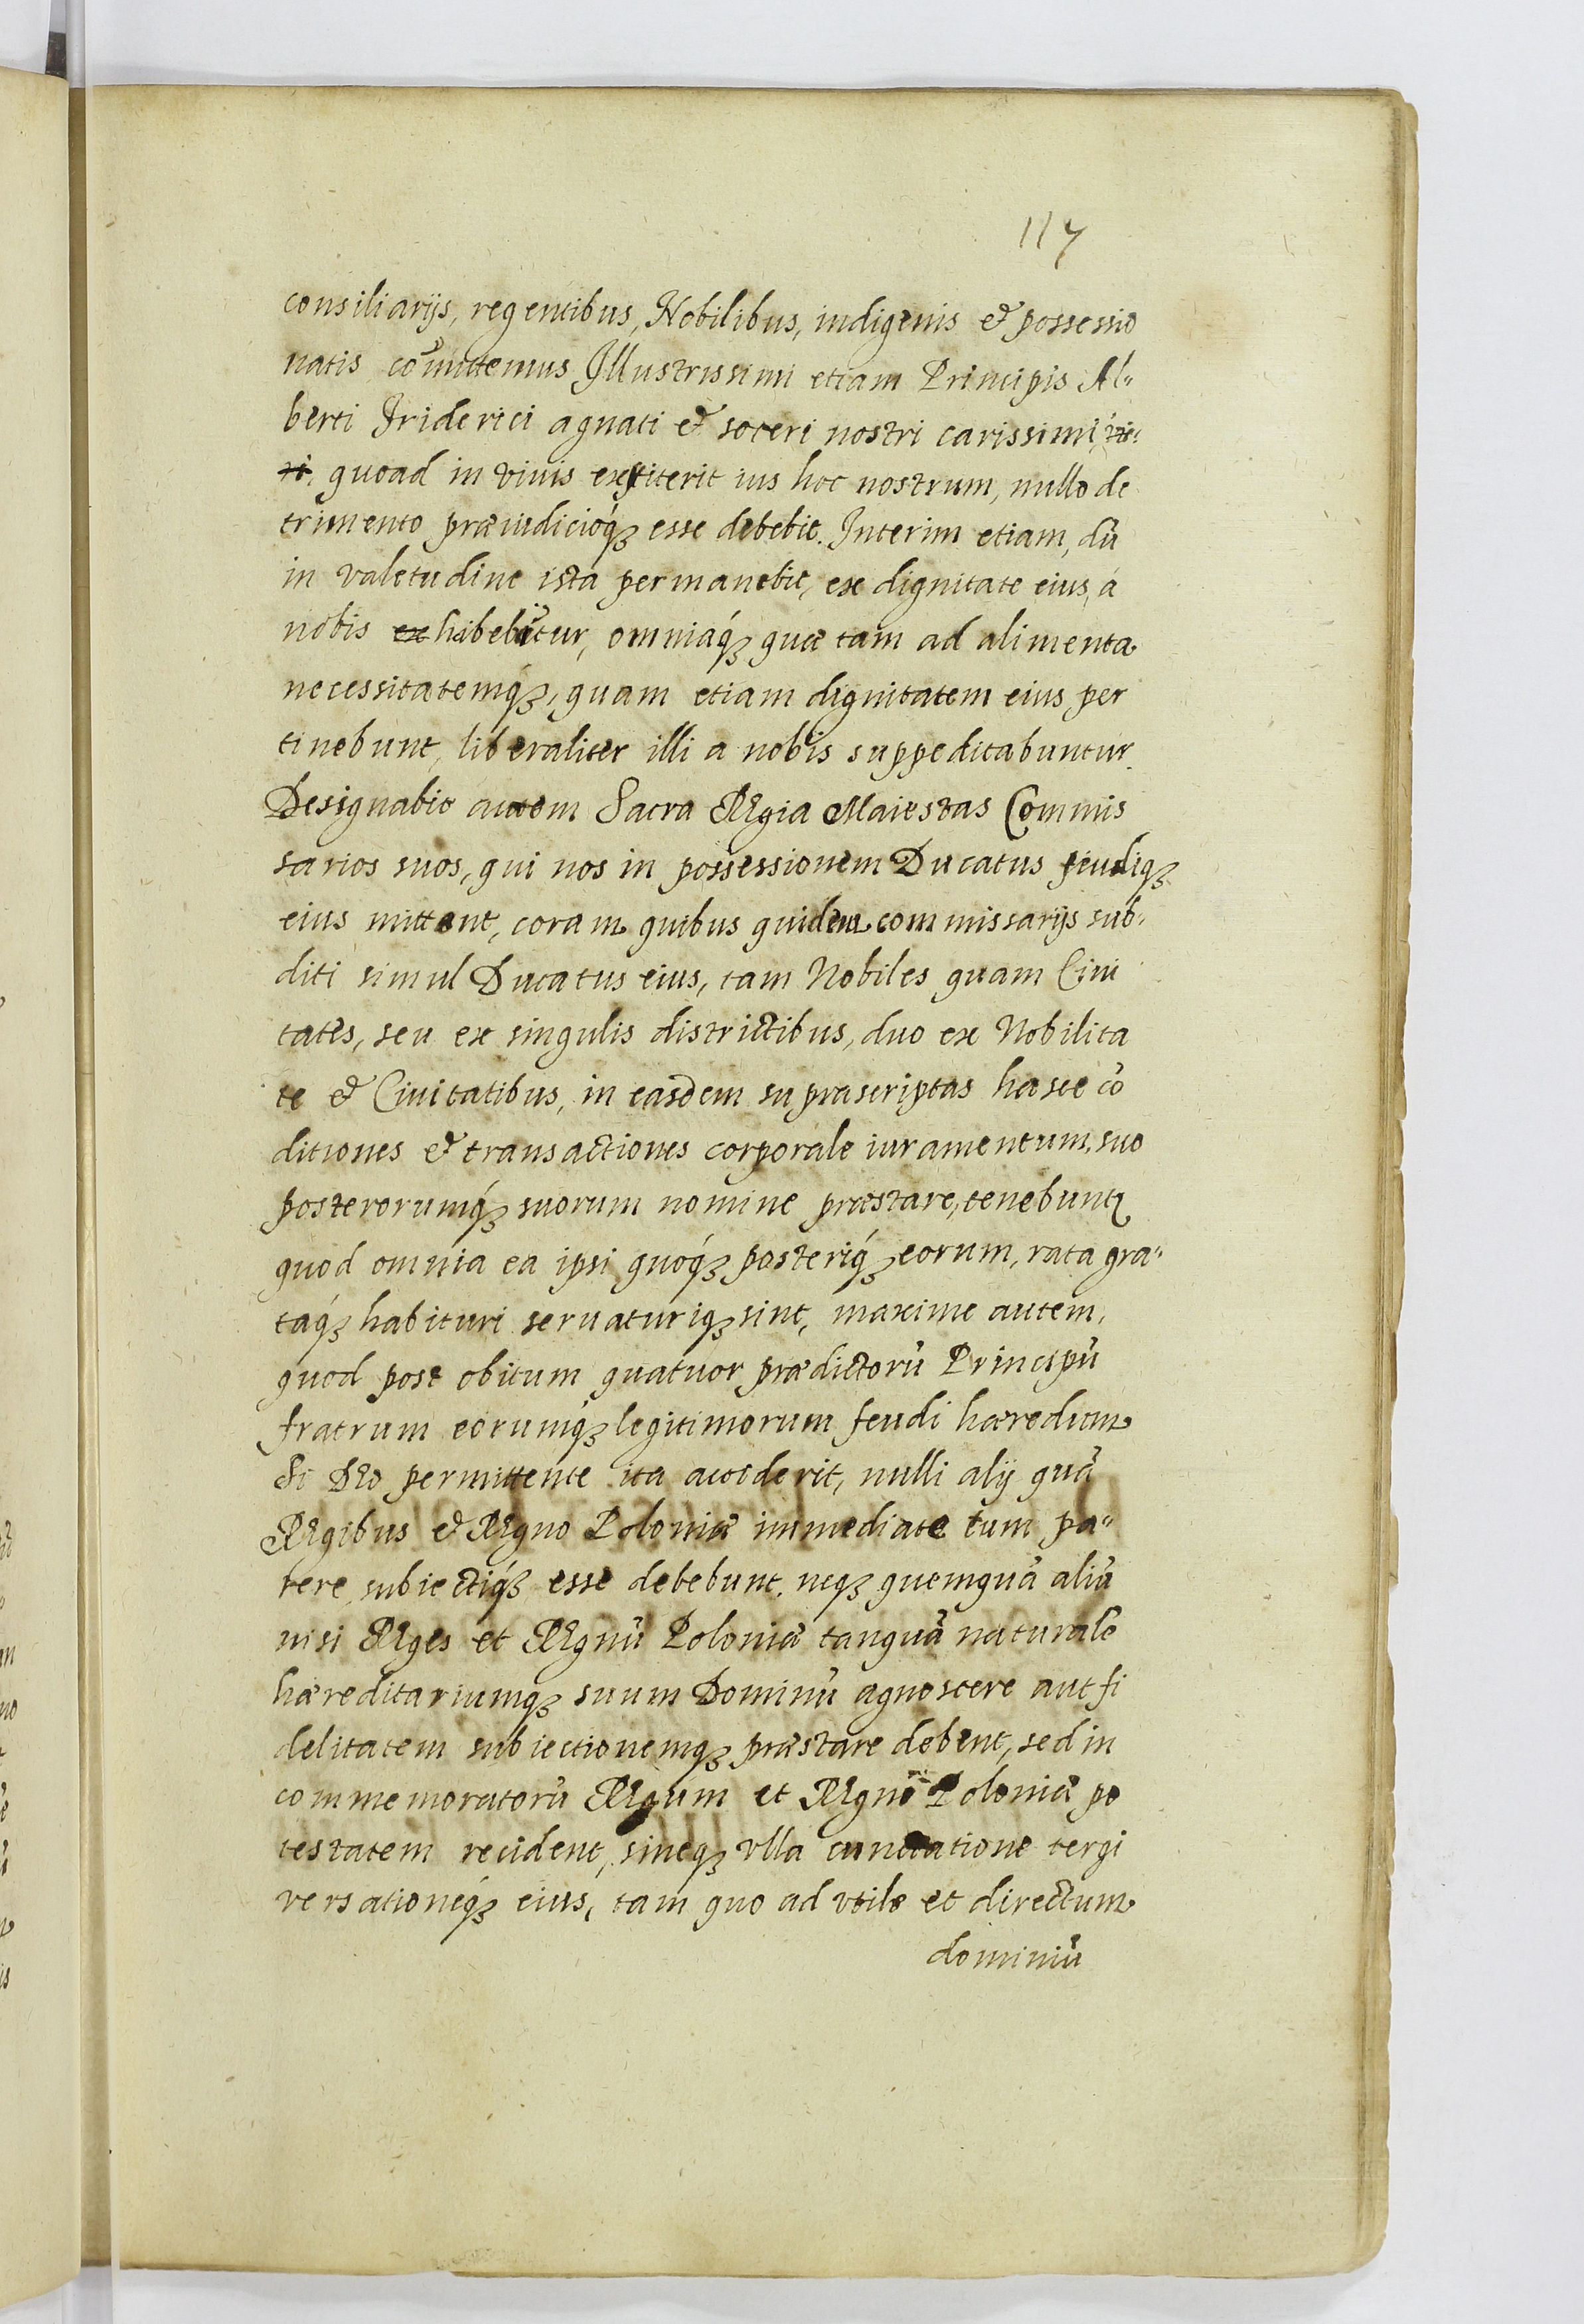 117
consiliarijs, regentibus, Nobilibus, indigenis & possessio
natis cõmittemus Illustrissimi etiam Principis Al„
berti Friderici agnati & soceri nostri carissimi,
quoad in viuis extiterit ius hoc nostrum, nullo de
trimento præiudicioq́ʒ esse debebit. Interim etiam, dũ
in valetudine ista permanebit, ex dignitate eius, á
nobis ex habebitur, omniaq́ʒ quæ tam ad alimenta
necessitatemq́ʒ, quam etiam dignitatem eius per
tinebunt, liberaliter illi a nobis suppeditabuntur.
Designabit autem Sacra Regia Maiestas Commis
sarios suos, qui nos in possessionem Ducatus feudiqʒ
eius mittent, coram quibus quidem commissarijs sub„
diti simul Ducatus eius, tam Nobiles quam Ciui
tates, seu ex singulis districtibus, duo ex Nobilita
te & Ciuitatibus, in easdem suprascriptas hasce cõ
ditiones & transactiones corporale iuramentum, suo
posterorumq́ʒ suorum nomine præstare, tenebuntꝛ
quod omnia ea ipsi quoq́ʒ posteriq́ʒ eorum, rata gra„
taq́ʒ habituri seruaturiqʒ sint, maxime autem,
quod post obitum quatuor prædictorũ Principũ
fratrum eorumq́ʒ legitimorum feudi hæredum
Si Deo permittente ita acciderit, nulli alij quã
Regibus & Regno Poloniæ immediate tum pa„
rere, subiectiq́ʒ esse debebunt, neqʒ quemquã aliũ
nisi Reges et Regnũ Poloniæ tanquã naturalẽ
hæreditariumqʒ suum Dominũ agnoscere aut fi
delitatem subiectionemqʒ præstare debent, sed in
commemoratorũ Regum et Regno Poloniæ po
testatem recident, sineqʒ vlla cunctatione tergi
versationeq́ʒ eius, tam quo ad vtile et directum
dominiũ